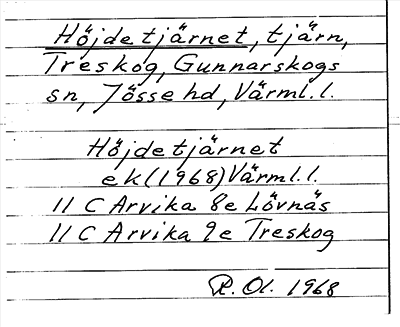 Höjdetjärnet, tjärn,
Treskog, Gunnarskogs
sn, Jösse hd, Värml.l.
Höjdetjärnet
ek (1968) Värml.l.
11 C Arvika 8e Lövnäs
11 C Arvika 9e Treskog
R.Ol. 1968